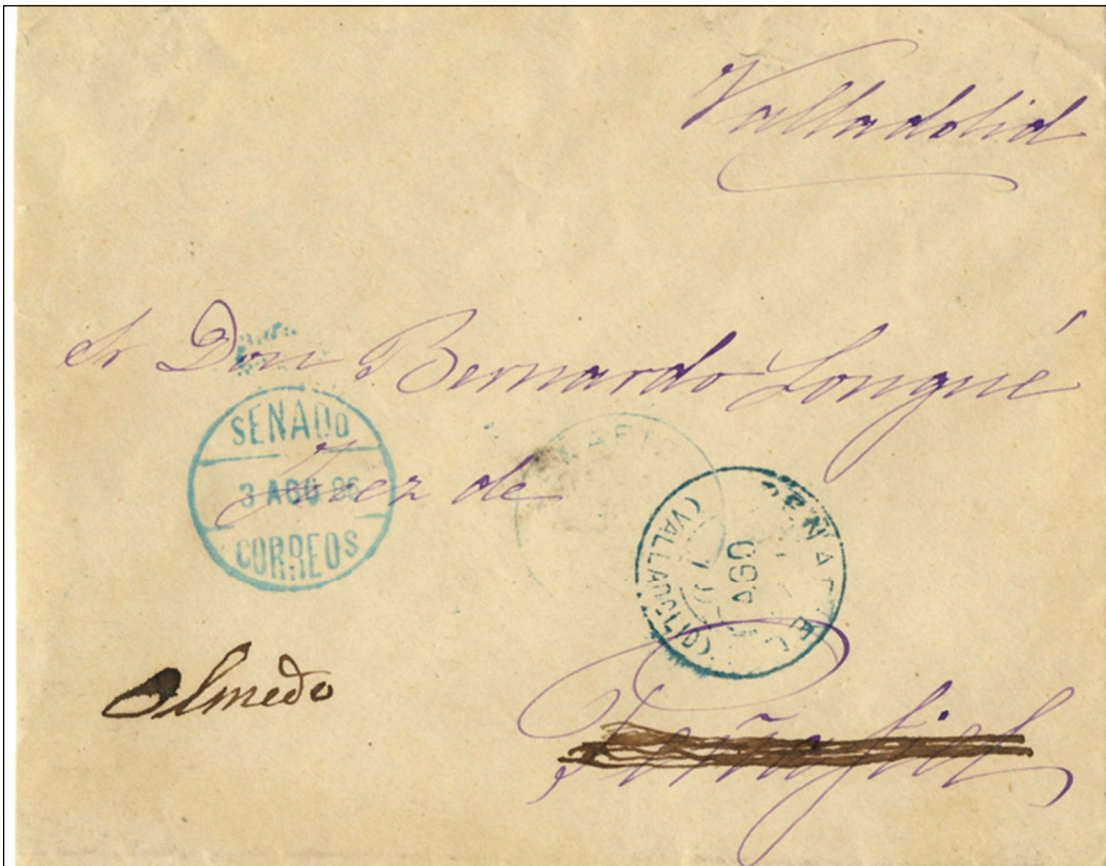 Valladolid
Sr Don Bernardo Longué
SENADO
3 AGO 86
CORREOS
Juez de
PEÑAFIEL
AGO
(VALLADOLID)
Olmedo
Peñafiel